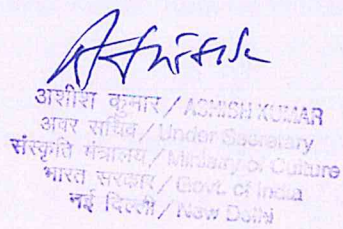 Ashish
अशीश कुमार / ASHISH KUMAR
अवर सचिव / Under Secretary
संस्कृति मंत्रालय / Ministry of Culture
भारत सरकार / Govt. of India
नई दिल्ली / New Delhi